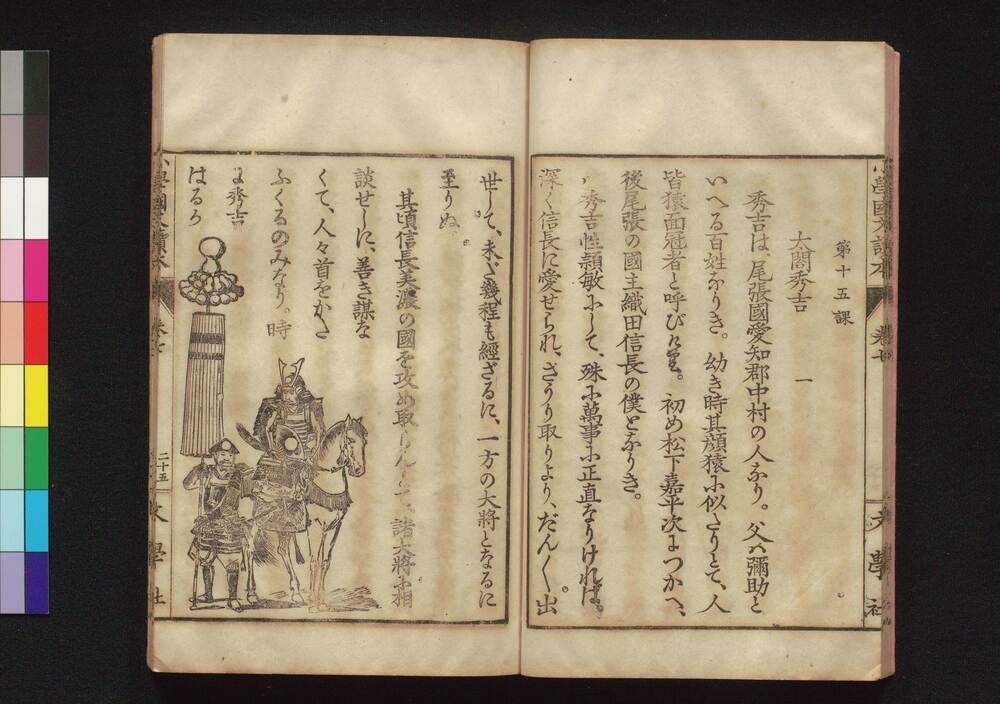 第十五課
太閤秀吉 一
秀吉は、尾張國愛知郡中村の人なり。父は彌助と
いへる百姓なりき。幼き時其顏猿に似たりとて、人
皆猿面冠者と呼びけり。初め松下嘉平次につかへ、
後尾張の國主織田信長の僕となりき。
秀吉性頴敏にして、殊に萬事に正直なりければ、
深く信長に愛せられ、ざうり取りより、だん〳〵出
世して、未だ幾程も經ざるに、一方の大將となるに
至りぬ。
其頃信長美濃の國を攻め取らんとて、諸大將に相
談せしに、善き謀な
くて、人々首をかた
ふくるのみなり。時
に秀吉
はるか
小學國文讀本
卷七
二十五
文學社
小學國文讀本 卷七
文學社